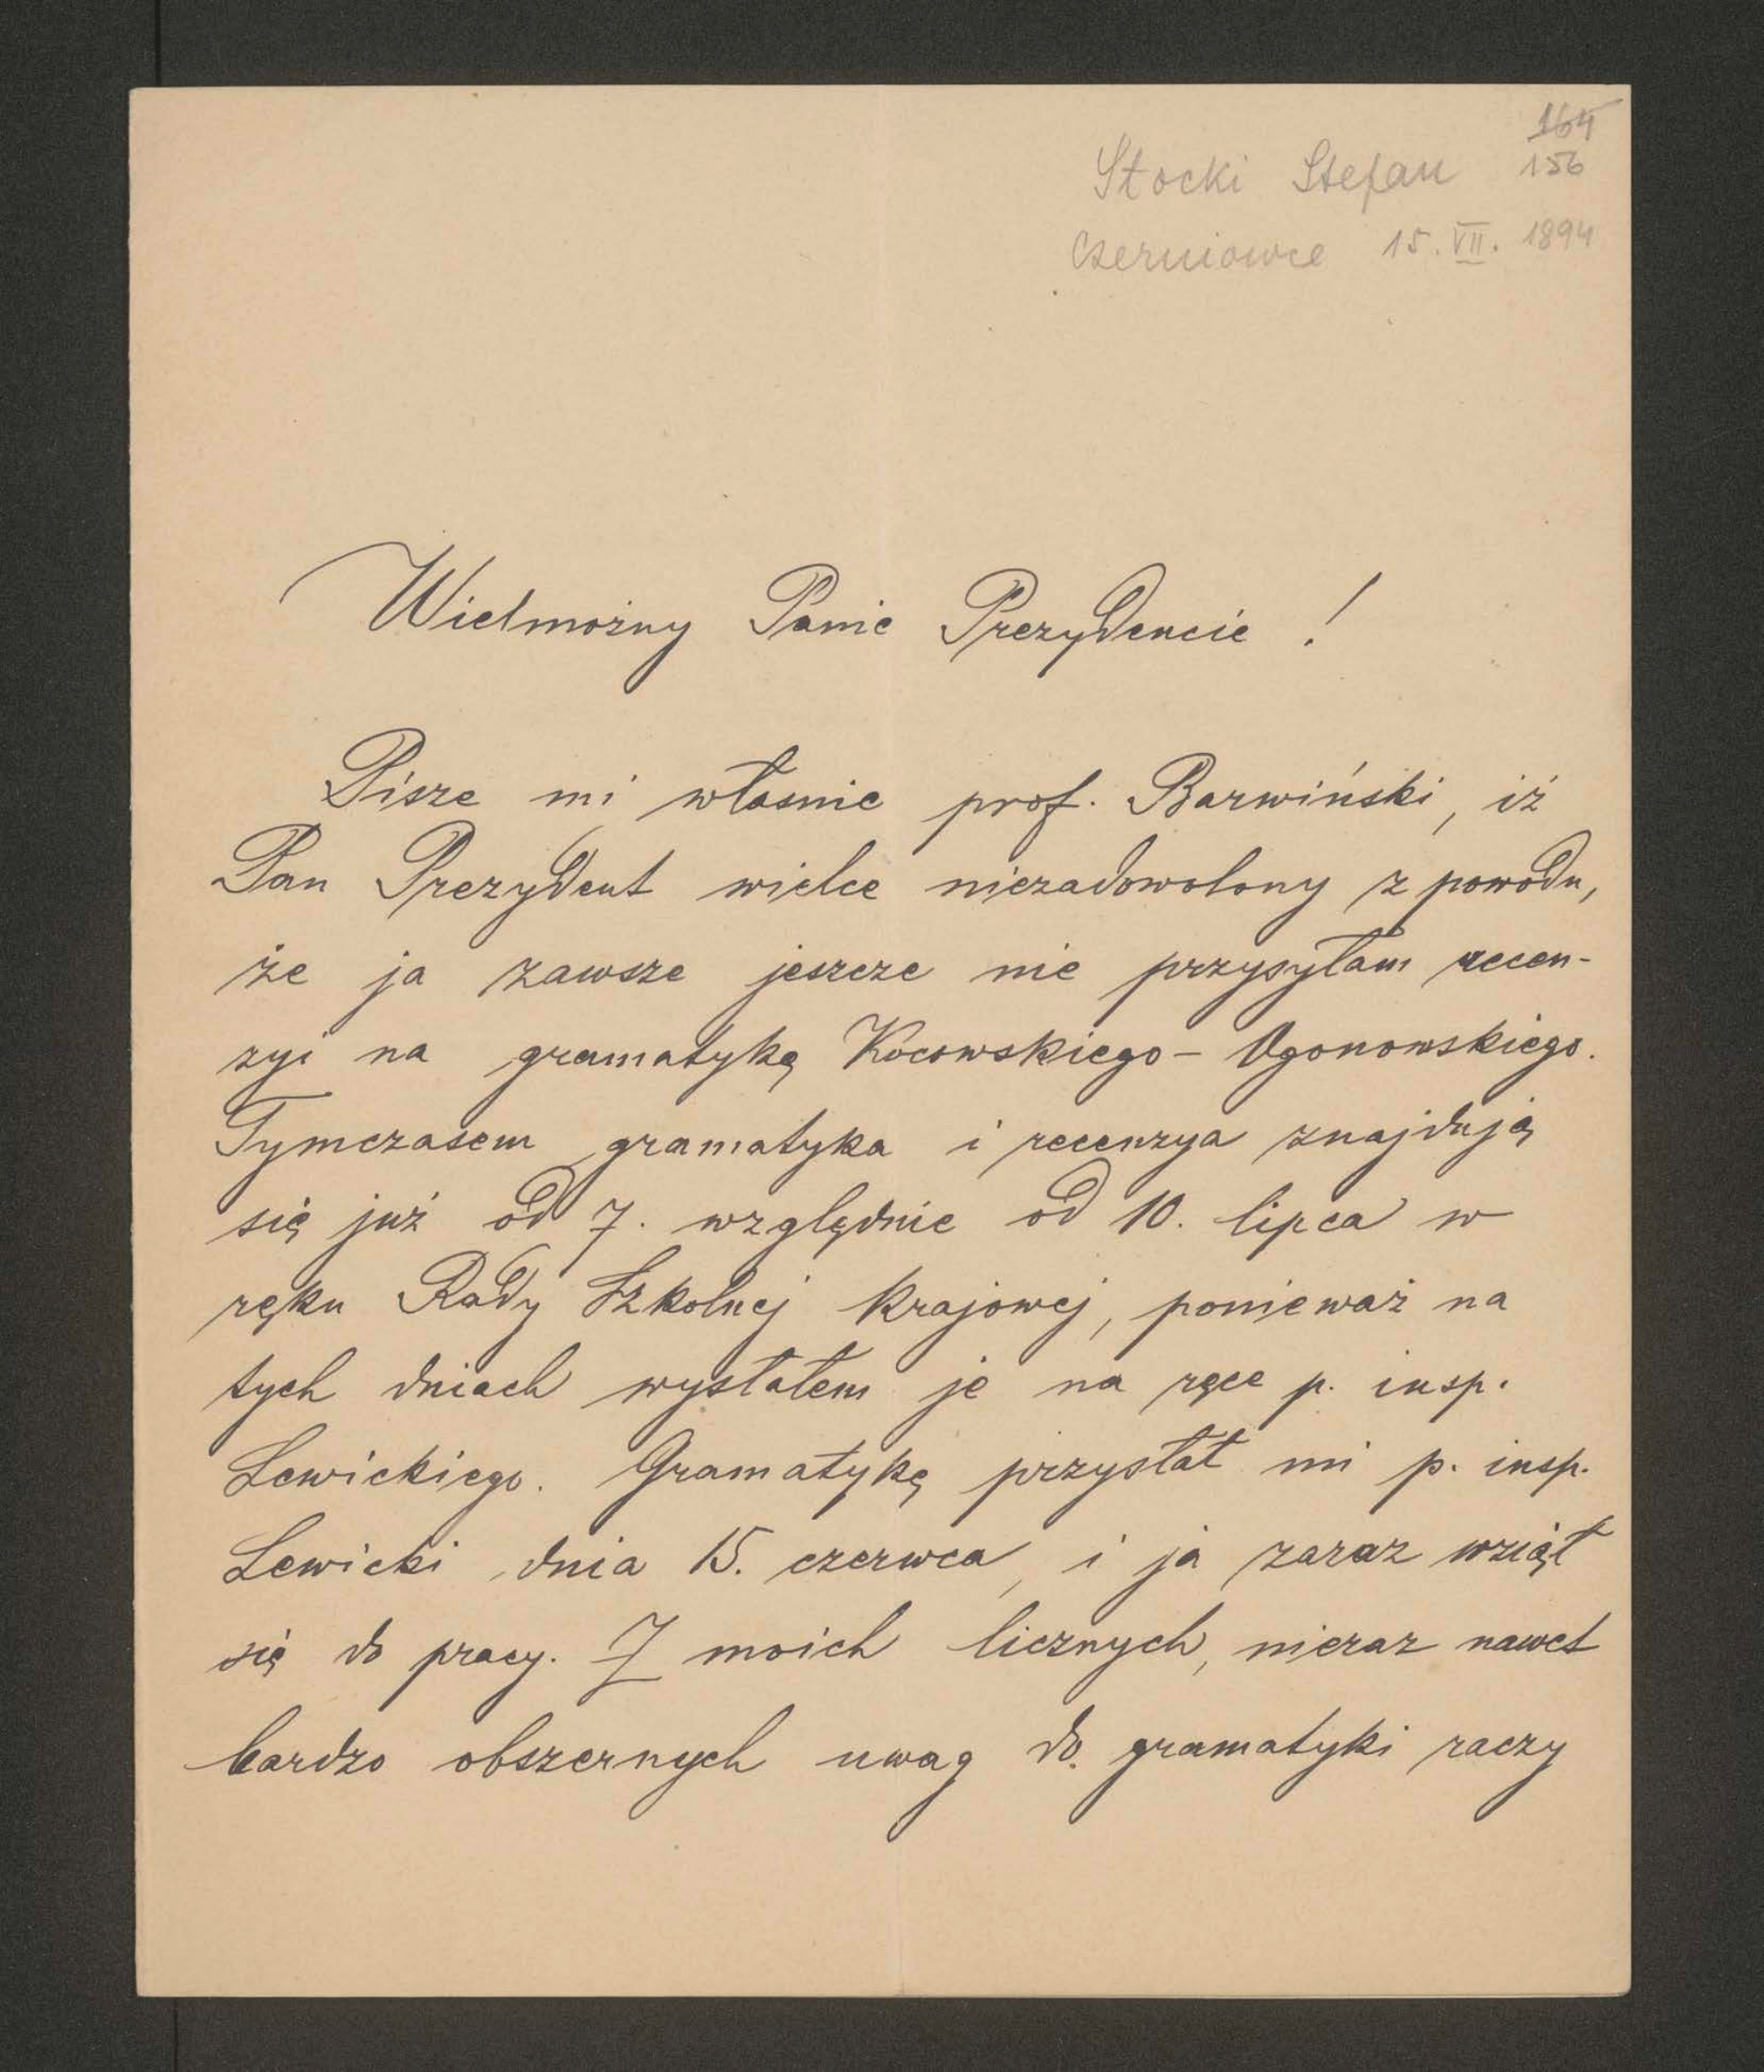 164
Stocki Stefan 156
Czerniowce 15. VII. 1894
Wielmożny Panie Prezydencie !
Pisze mi właśnie prof. Barwiński, iż
Pan Prezydent wielce niezadowolony z powodu,
że ja zawsze jeszcze nie przysyłam recen-
zyi na gramatykę Kocowskiego - Ogonowskiego.
Tymczasem gramatyka i recenzya znajdują
się już od 7. względnie od 10. lipca w
ręku Rady Szkolnej krajowej, ponieważ na
tych dniach wysłałem je na ręce p. insp.
Lewickiego. Gramatykę przysłał mi p. insp.
Lewicki dnia 15. czerwca, i ja zaraz wziął
się do pracy. Z moich licznych, nieraz nawet
bardzo obszernych uwag do gramatyki raczy